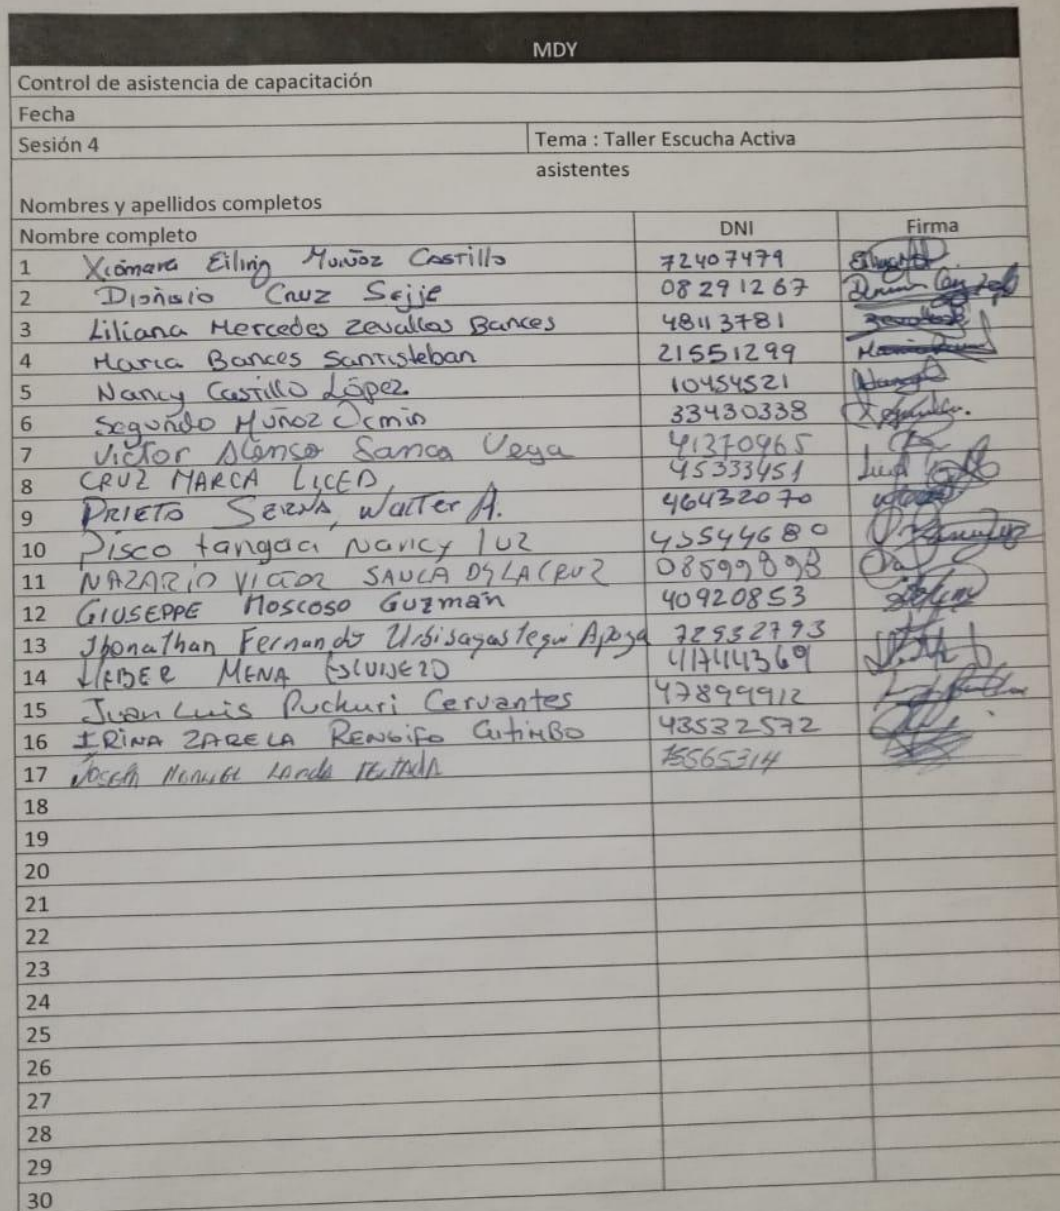 MDY
Control de asistencia de capacitación
Fecha
Sesión 4 Tema : Taller Escucha Activa
asistentes
Nombres y apellidos completos
Nombre completo DNI Firma
1 Xiomara Eiling Muñoz Castillo 72407479
2 Dionisio Cruz Seije 08291267
3 Liliana Mercedes Zevallos Bances 48113781
4 Maria Bances Santisteban 21551299
5 Nancy Castillo López 10454521
6 Segundo Muñoz Ocmin 33430338
7 Victor Alonso Sanca Vega 41370965
8 CRUZ MARCA LICED 45333451
9 PRIETO SERNA, Walter A. 46432070
10 Pisco tangoa Nancy luz 45544680
11 NAZARIO VICTOR SAUCA DE LA CRUZ
12 GIUSEPPE Moscoso Guzmán 40920853
13 Jhonathan Fernando Urbisagastegui Apoza 72932793
14 MENA 41744369
15 Juan Luis Puchuri Cervantes 47899912
16 IRINA ZARELA RENGIFO CutiMBO 43532572
17 Joseph Manuel Landa
18
19
20
21
22
23
24
25
26
27
28
29
30